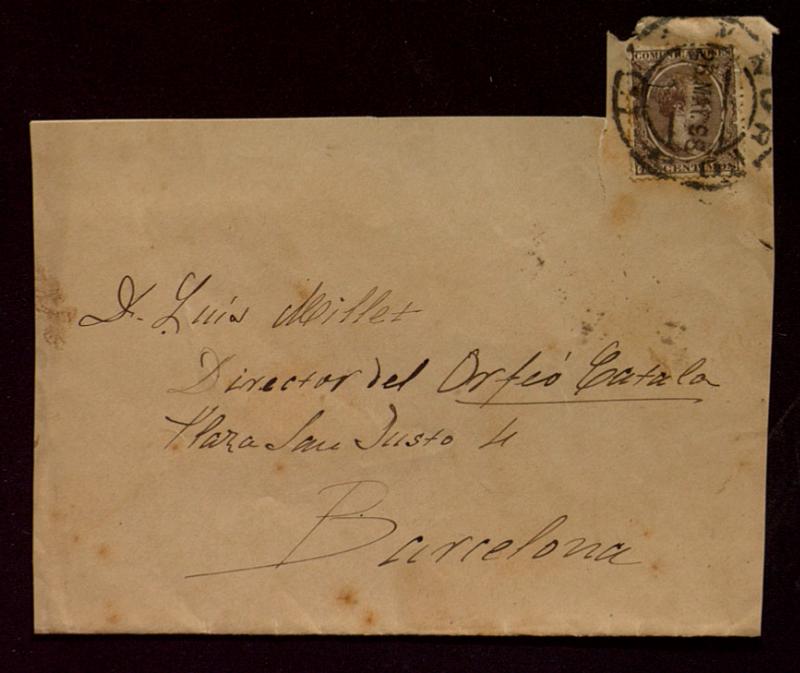 COMUNICACIONES
26 MAY. 98
MADRID
15 CENTIMOS
D. Luís Millet
Director del Orfeó Catala
Plaza San Justo 4
Barcelona